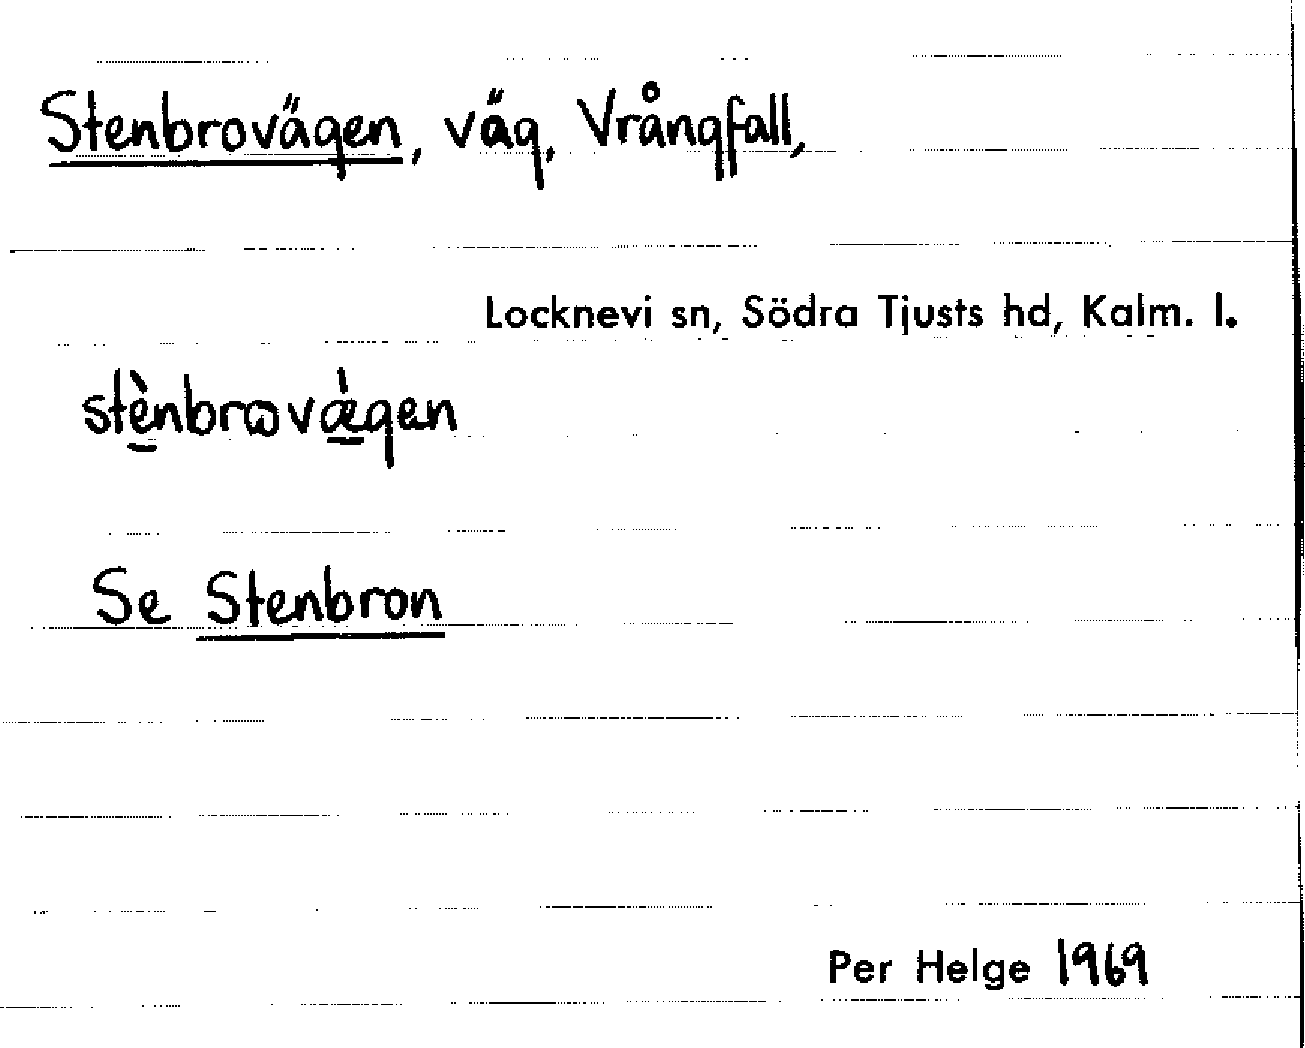 Stenbrovägen, väg, Vrångfall,
Locknevi sn, Södra Tjusts hd, Kalm. l.
stè̠nbrωvæ̠̀gen
Se Stenbron
Per Helge 1969